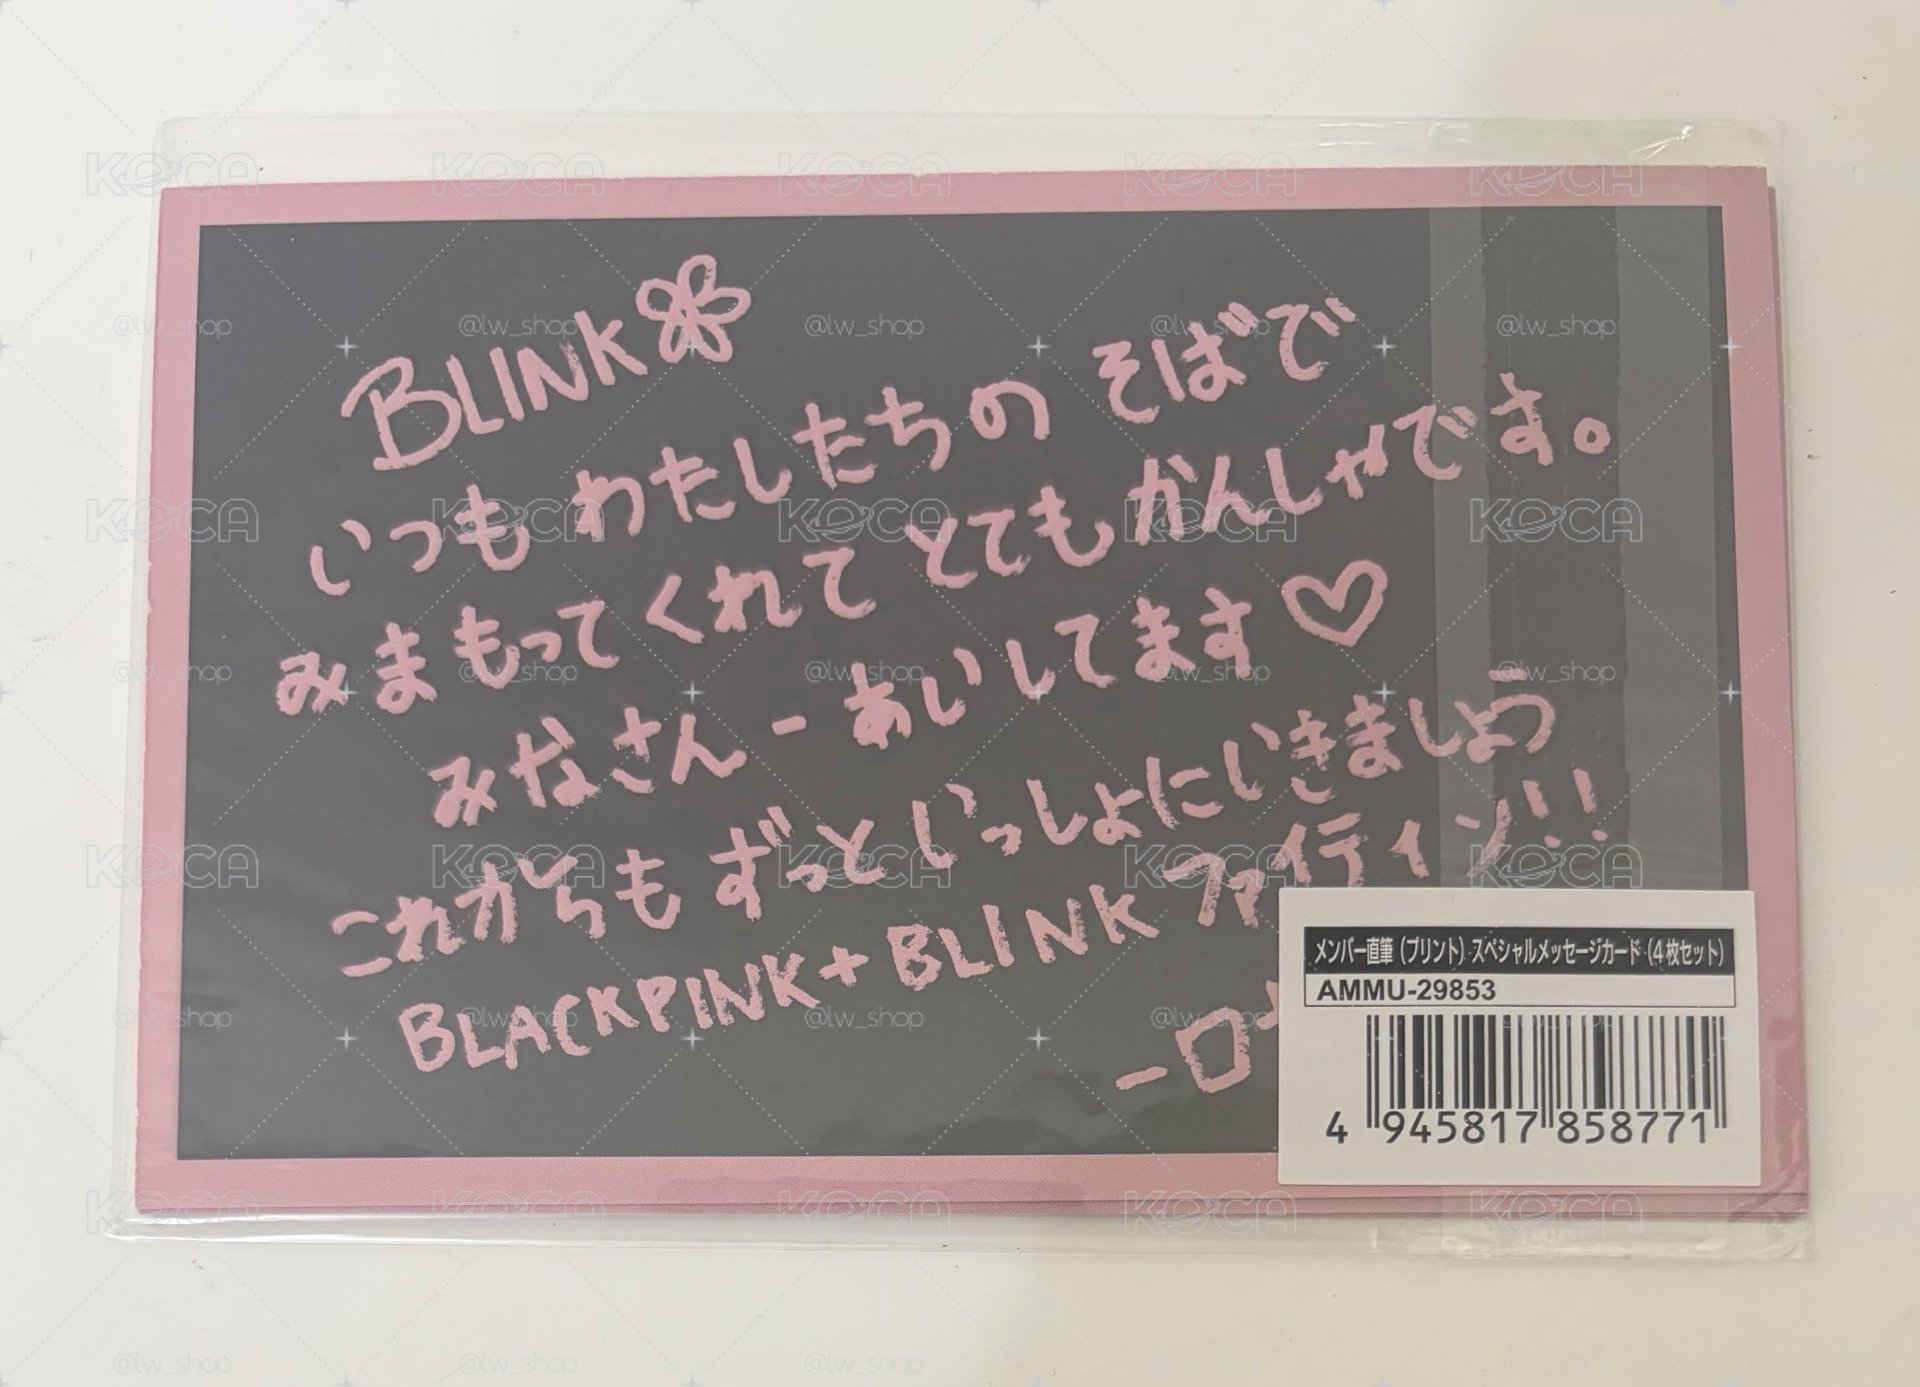 BLINK
いつも わたしたちの そばで
みまもってくれて とても かんしゃです。
みなさん - あいしてます♡
これからも ずっと いっしょにいきましょう
BLACKPINK + BLINK ファイティン!!
- ロ
メンバー直筆（プリント）スペシャルメッセージカード（4枚セット）
AMMU-29853
4 945817 858771
KOCA
@lw_shop